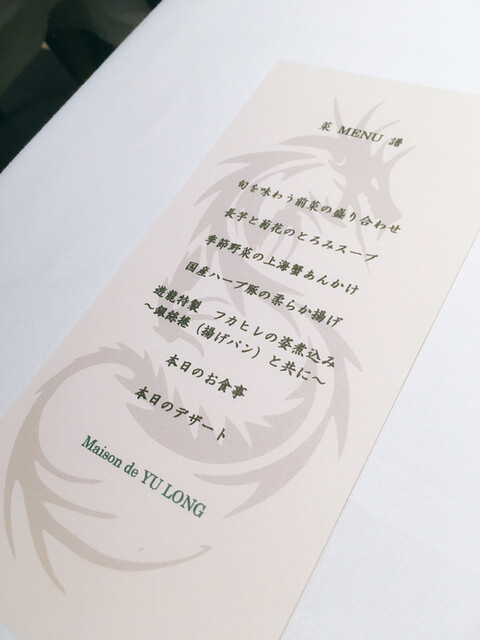 菜 MENU 譜
旬を味わう前菜の盛り合わせ
長芋と菊花のとろみスープ
季節野菜の上海蟹あんかけ
国産ハーブ豚の柔らか揚げ
遊龍特製 フカヒレの姿煮込み
～銀絲捲（揚げパン）と共に～
本日のお食事
本日のデザート
Maison de YU LONG